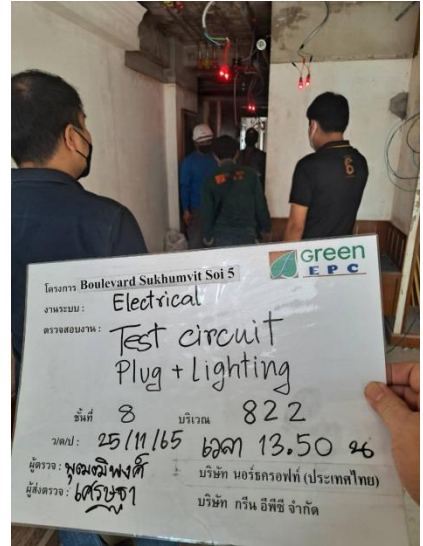 Green
EPC
โครงการ Boulevard Sukhumvit Soi 5
งานระบบ : Electrical
ตรวจสอบงาน : Test circuit
Plug + Lighting
ชั้นที่ 8 บริเวณ 822
ว/ด/ป : 25/11/65 เวลา 13.50 น
ผู้ตรวจ : พุฒิพงศ์ : บริษัท นอร์ธครอฟท์ (ประเทศไทย)
ผู้ส่งตรวจ : เศรษฐา บริษัท กรีน อีพีซี จำกัด